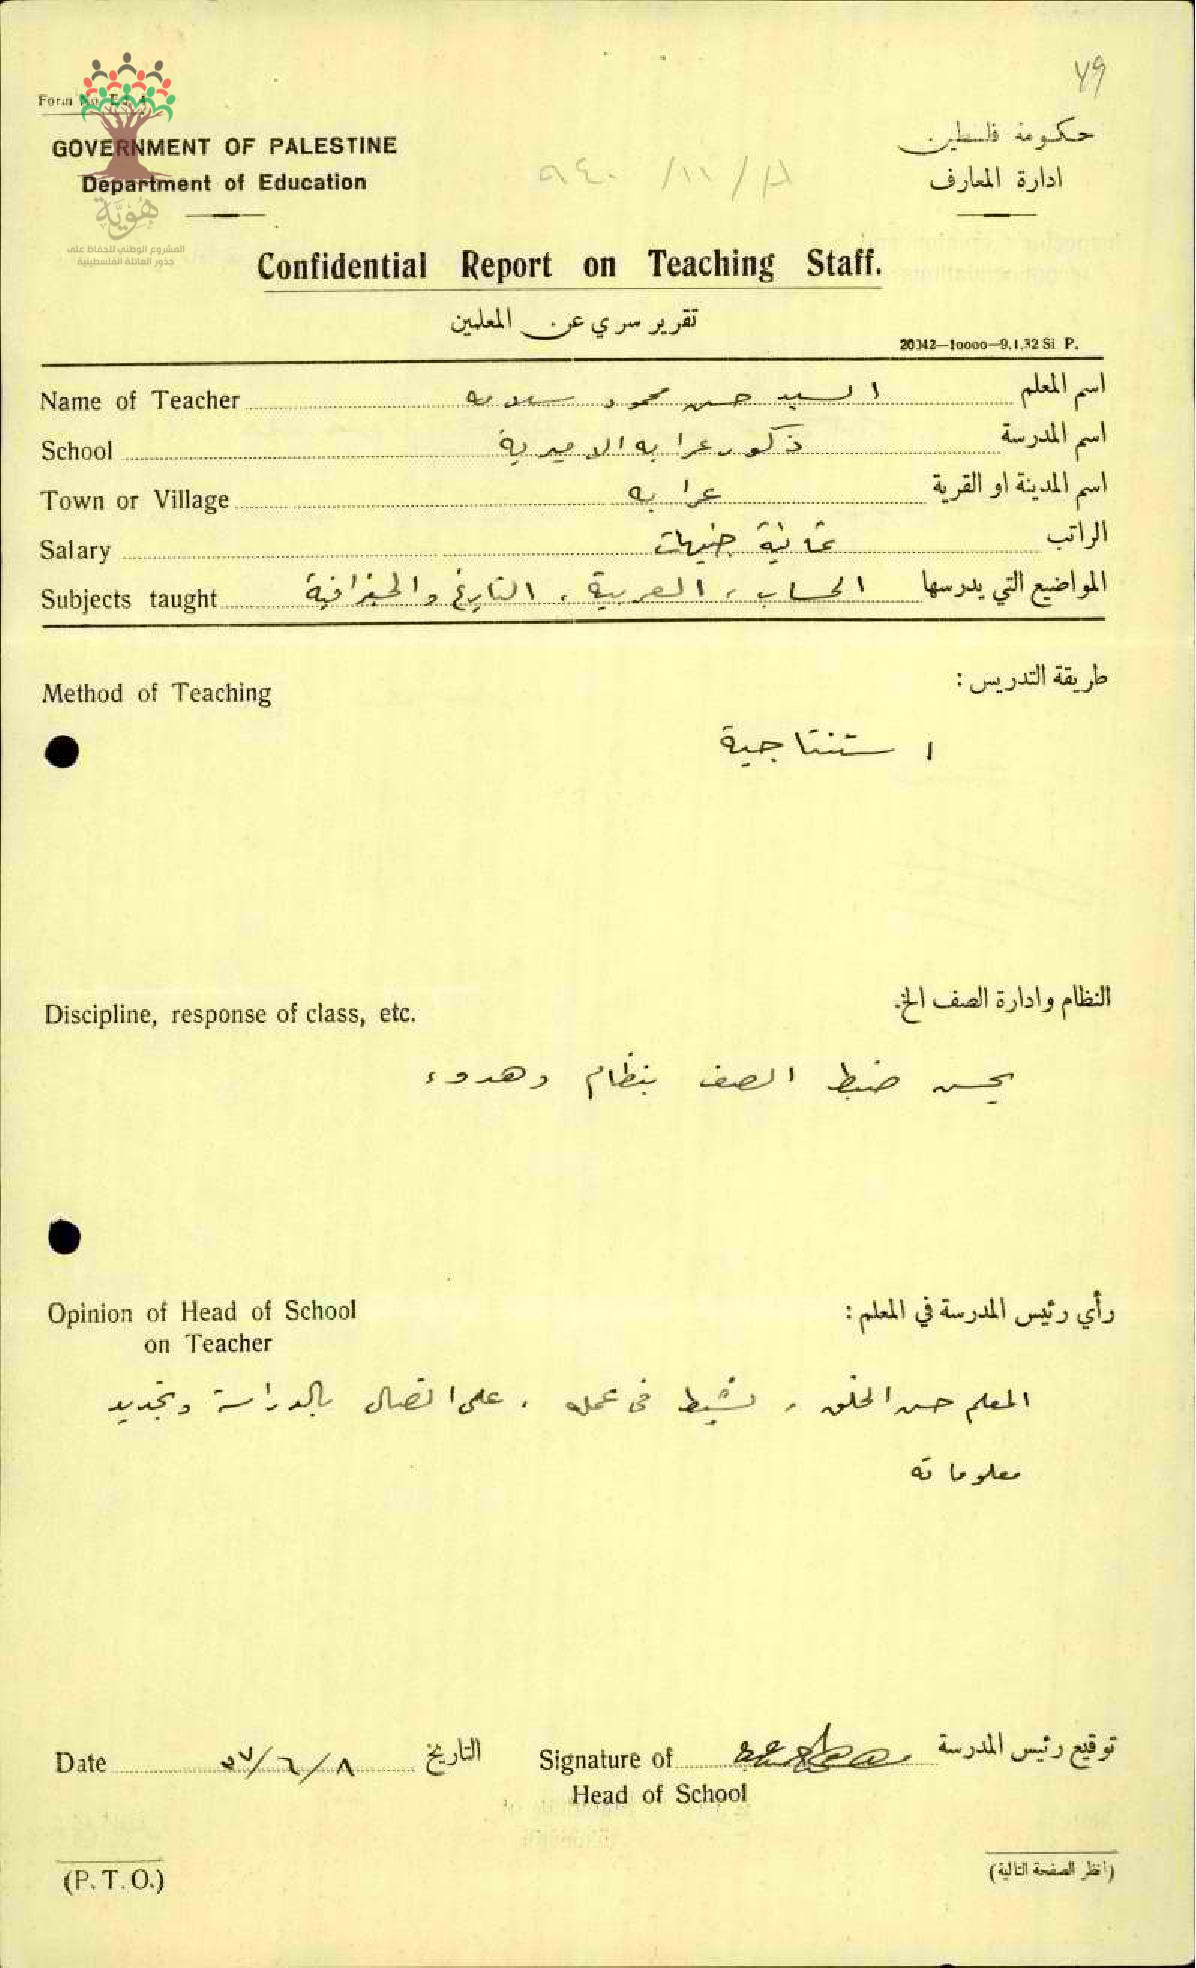 ٧٩
Form No. Ed. 4
GOVERNMENT OF PALESTINE
Department of Education
حكومة فلسطين
ادارة المعارف
هُويَّة
المشروع الوطني للحفاظ على
جذور العائلة الفلسطينية
Confidential Report on Teaching Staff.
تقرير سري عن المعلمين
20042—10000—9.1.32 Si P.
Name of Teacher السيد حسن محمود سلامه اسم المعلم
School ذكور عرابه الاميرية اسم المدرسة
Town or Village عرابه اسم المدينة او القرية
Salary ثمانية جنيهات الراتب
Subjects taught الحساب ، العربية ، التاريخ والجغرافية المواضيع التي يدرسها
Method of Teaching طريقة التدريس :
استنتاجية
Discipline, response of class, etc. النظام وادارة الصف الخ.
يحسن ضبط الصف بنظام وهدوء
Opinion of Head of School رأي رئيس المدرسة في المعلم :
on Teacher
المعلم حسن الخلق ، نشيط في عمله ، على اتصال بالدراسة وتجديد
معلوماته
Date ٨/٦/٣٧ التاريخ Signature of توقيع رئيس المدرسة
Head of School
(P. T. O.) (انظر الصفحة التالية)